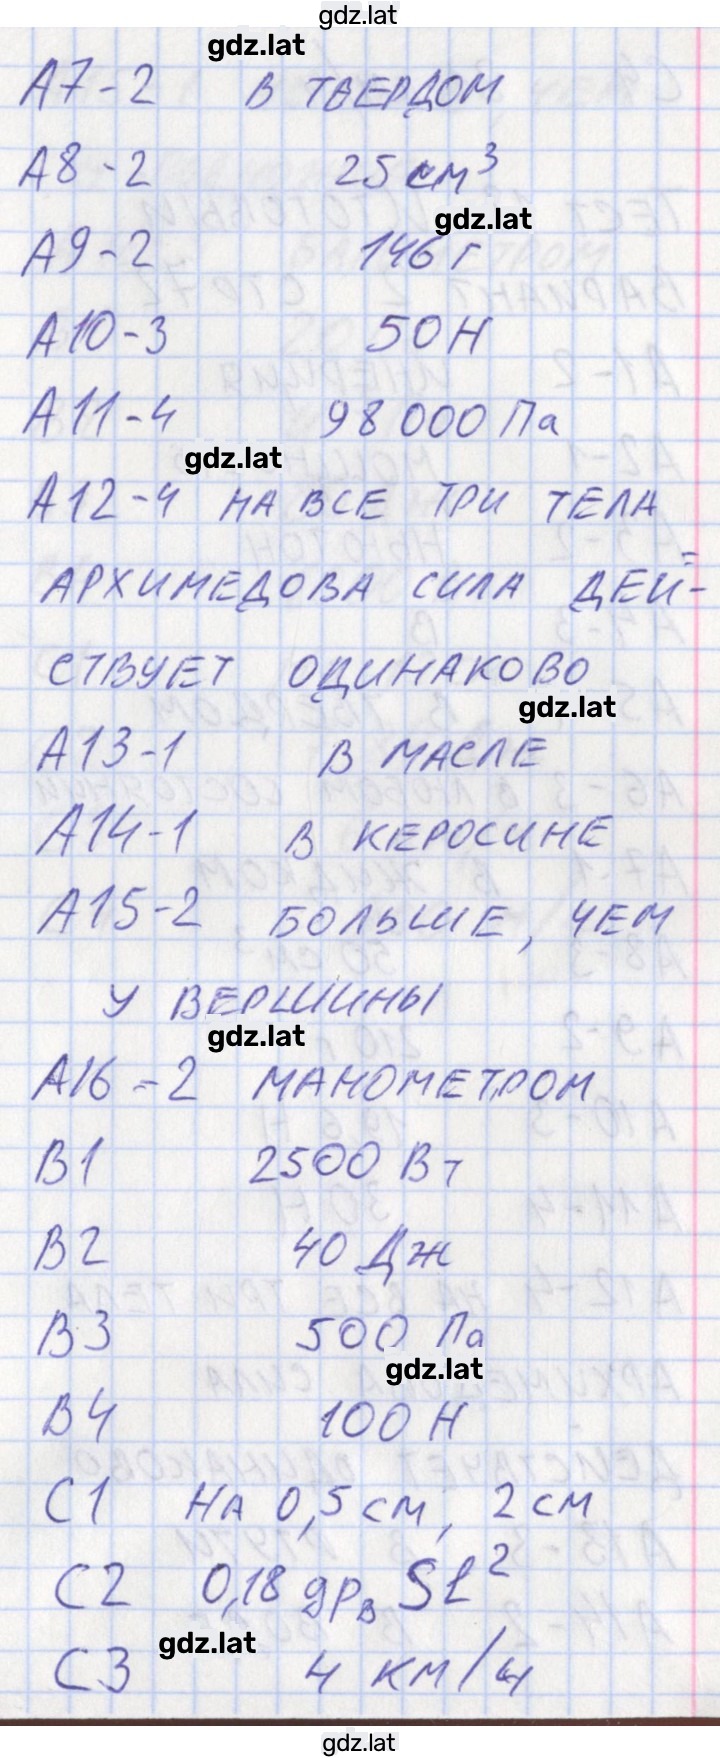 gdz.lat
gdz.lat
А7-2 В ТВЕРДОМ
А8-2 25 см³
gdz.lat
А9-2 146 г
А10-3 50 Н
А11-4 98 000 Па
gdz.lat
А12-4 НА ВСЕ ТРИ ТЕЛА
АРХИМЕДОВА СИЛА ДЕЙ-
СТВУЕТ ОДИНАКОВО
gdz.lat
А13-1 В МАСЛЕ
А14-1 В КЕРОСИНЕ
А15-2 БОЛЬШЕ, ЧЕМ
У ВЕРШИНЫ
gdz.lat
А16-2 МАНОМЕТРОМ
В1 2500 Вт
В2 40 Дж
В3 500 Па
gdz.lat
В4 100 Н
С1 НА 0,5 см, 2 см
С2 0,18 gρв Sl²
gdz.lat
С3 4 км/ч
gdz.lat